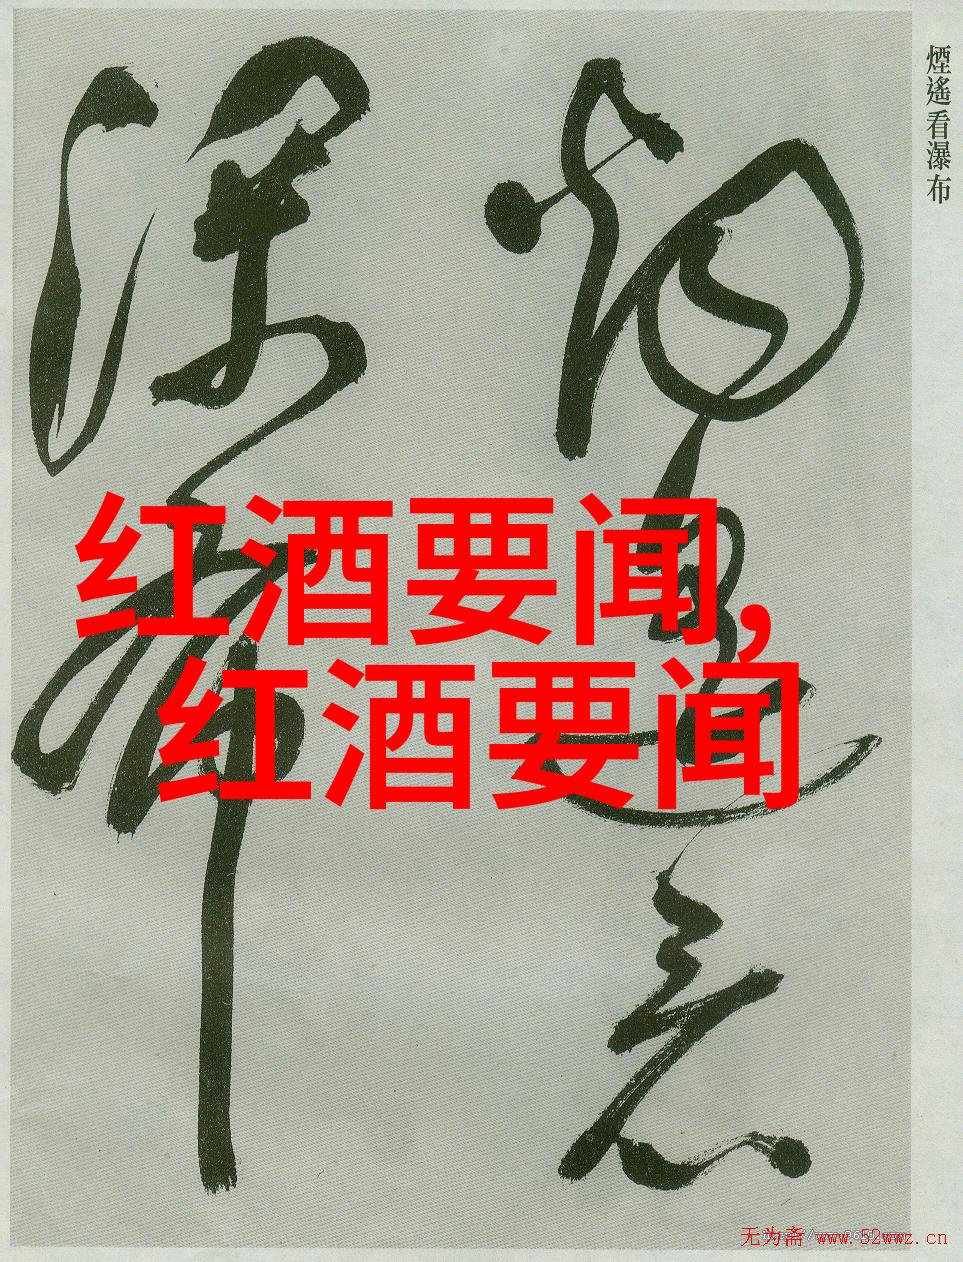 煙遙看瀑布
煙遙看
瀑布
红酒要闻,
红酒要闻
无为斋 www.52wwz.cn